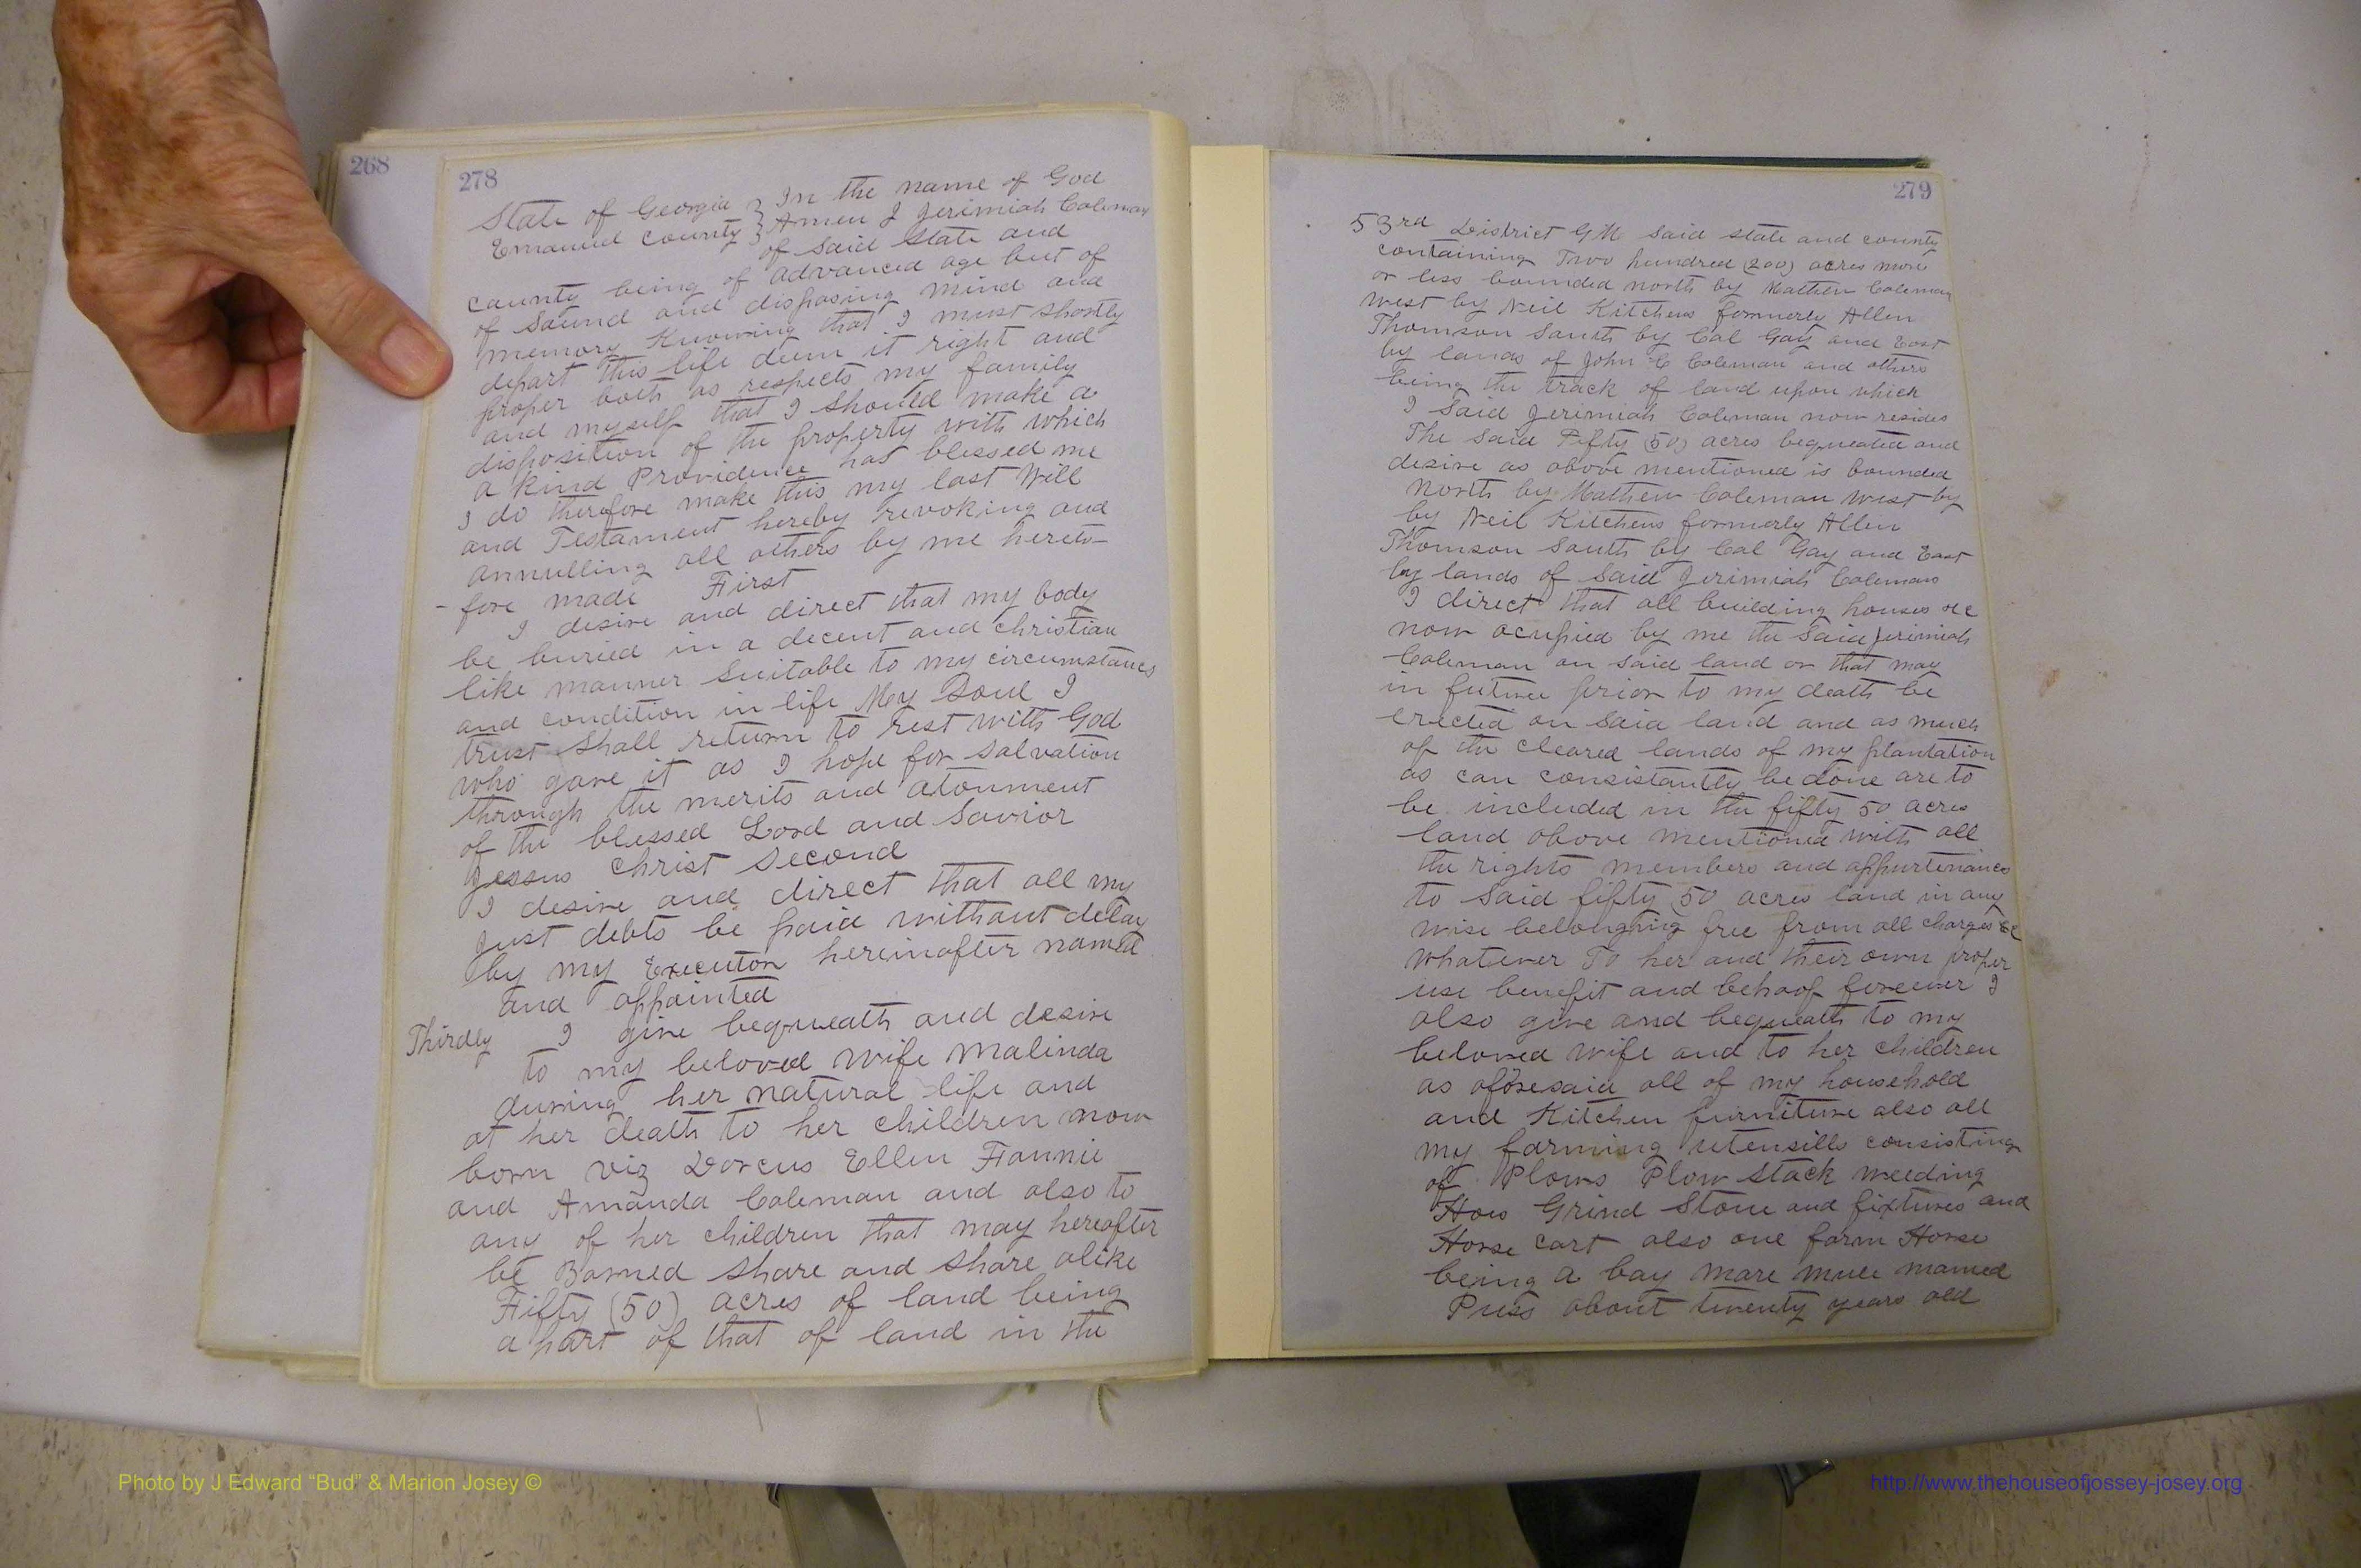 268
278
State of Georgia } In the name of God
Emanuel County } Amen I Jerimiah Coleman
of said State and
county being of advanced age but of
of sound and disposing mind and
memory Knowing that I must shortly
depart this life deem it right and
proper both as respects my family
and myself that I should make a
disposition of the property with which
a kind Providence has blessed me
I do therefore make this my last Will
and Testament hereby revoking and
annulling all others by me hereto-
-fore made First
I desire and direct that my body
be buried in a decent and christian
like manner suitable to my circumstances
and condition in life My Soul I
trust shall return to rest with God
who gave it as I hope for salvation
through the merits and atonment
of the blessed Lord and Savior
Jessus Christ Second
I desire and direct that all my
just debts be paid without delay
by my Executor hereinafter named
and appointed
Thirdly I give bequeath and desire
to my beloved wife Malinda
during her natural life and
at her death to her children now
born viz Dorcus Ellen Fannie
and Amanda Coleman and also to
any of her children that may hereafter
be Borned share and share alike
Fifty (50) acres of land being
a part of that of land in the
279
53rd District G M said state and county
containing Two hundred (200) acres more
or less bounded north by Mathew Coleman
west by Neil Kitchens formerly Allen
Thomson South by Cal Gay and East
by lands of John C Coleman and others
being the track of land upon which
I said Jerimiah Coleman now resides
The said Fifty (50) acres bequeated and
desire as above mentioned is bounded
North by Mathew Coleman West by
by Neil Kitchens formerly Allen
Thomson South by Cal Gay and East
by lands of said Jerimiah Coleman
I direct that all building houses &c
now ocupied by me the said Jerimiah
Coleman on said land or that may
in future prior to my death be
erected on said land and as much
of the cleared lands of my plantation
as can consistantly be done are to
be included in the fifty 50 acres
land above mentioned with all
the rights members and appurtenances
to said fifty 50 acres land in any
wise belonghing free from all charges &c
whatever To her and their own proper
use benefit and behoof foreever I
also give and bequeath to my
beloved wife and to her children
as aforesaid all of my household
and Kitchen furniture also all
my farming utensills consisting
of Plows Plow stack weeding
Hows Grind Stone and fixtures and
Horse cart also one farm Horse
being a bay mare mule named
Puss about twenty years old
Photo by J Edward “Bud” & Marion Josey ©
http://www.thehouseofjossey-josey.org